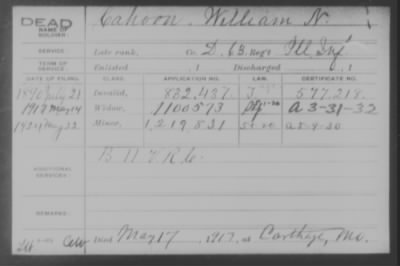 DEAD Cahoon, William N.
NAME OF SOLDIER:
SERVICE: Late rank, Co. D, 63 Reg't Ill. Inf.
TERM OF SERVICE: Enlisted , 1 Discharged , 1
DATE OF FILING. CLASS. APPLICATION NO. LAW. CERTIFICATE NO.
1890 July 21 Invalid, 832,437. J 577,218.
1917 May 14 Widow, 1100573 A 3-31-32
May 22 Minor, 1,219,831
ADDITIONAL SERVICES:
REMARKS:
Died May 17, 1917, at Carthage, Mo.